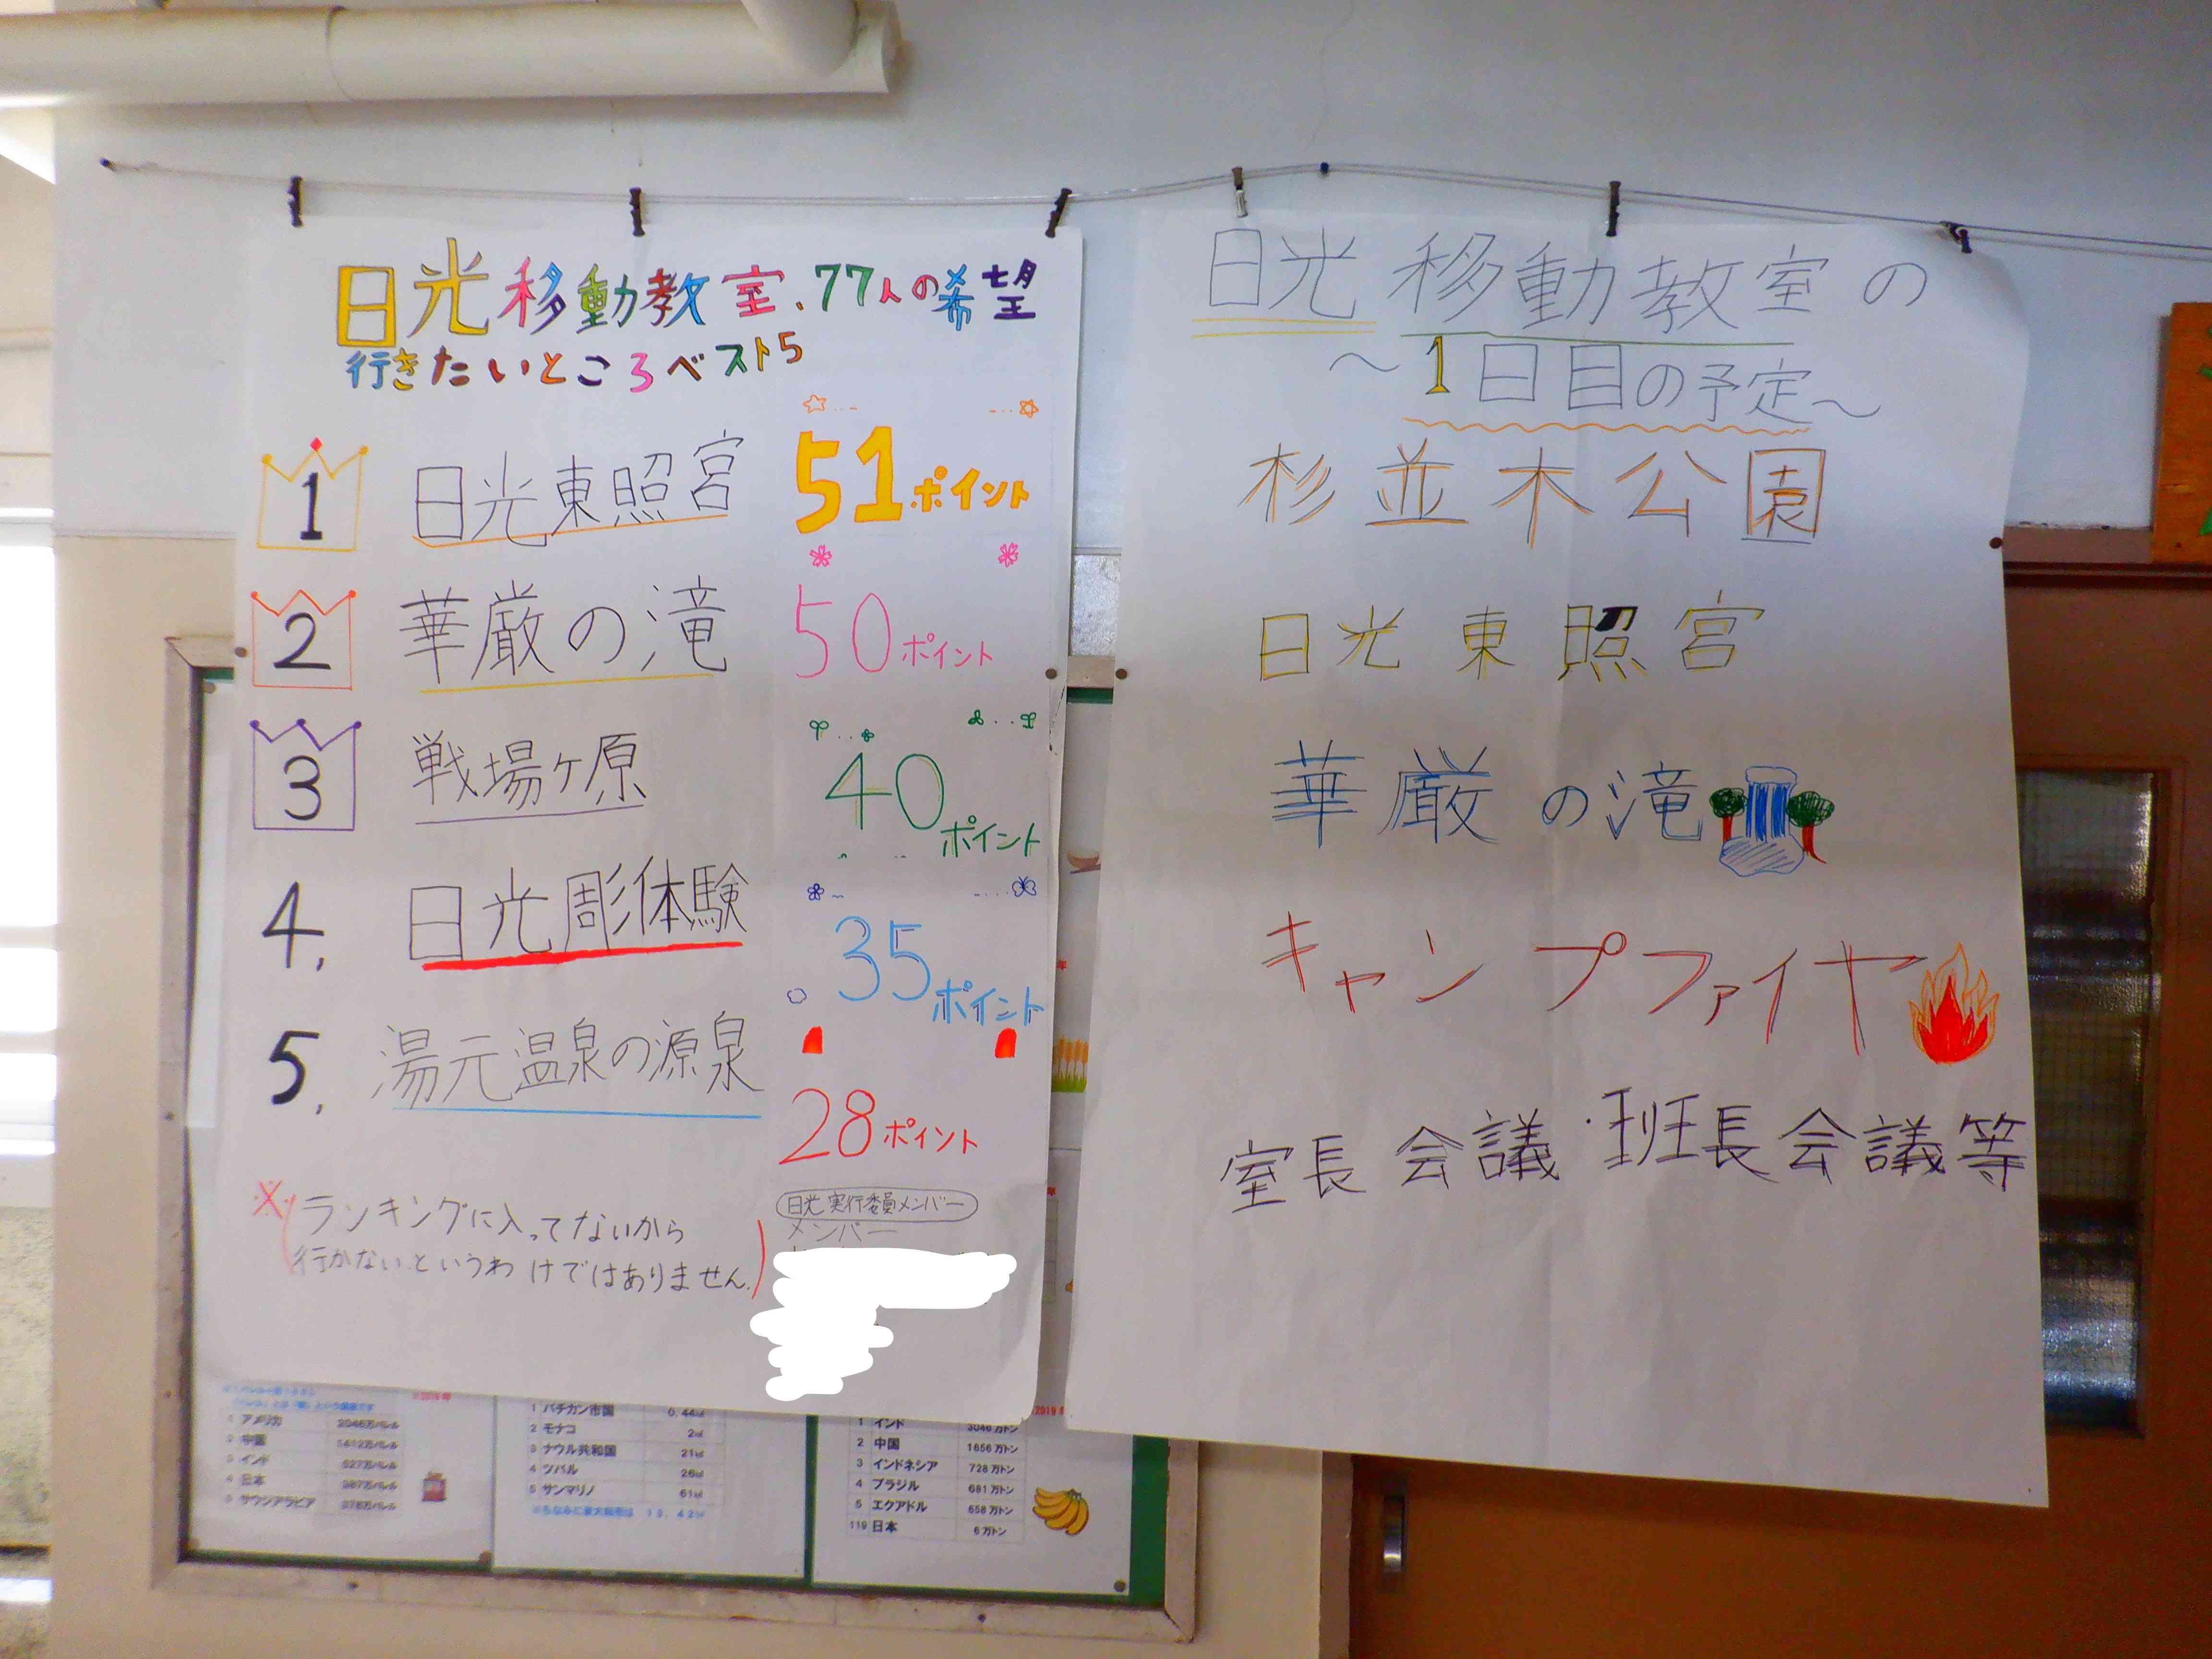 日光移動教室、77人の希望
行きたいところベスト5
1 日光東照宮 51ポイント
2 華厳の滝 50ポイント
3 戦場ヶ原 40ポイント
4. 日光彫体験 35ポイント
5. 湯元温泉の源泉 28ポイント
※(ランキングに入ってないから
行かないというわけではありません。)
日光実行委員メンバー
メンバー
日光移動教室の
〜1日目の予定〜
杉並木公園
日光東照宮
華厳の滝
キャンプファイヤー
室長会議・班長会議等
2019年
1 アメリカ
2 中国
3 インド
4 日本
5 サウジアラビア
1 バチカン市国 0.44㎢
2 モナコ 2㎢
3 ナウル共和国 21㎢
4 ツバル 26㎢
5 サンマリノ 61㎢
2019
1 インド 3046万トン
2 中国 1656万トン
3 インドネシア 728万トン
4 ブラジル 681万トン
5 エクアドル 658万トン
119 日本 6万トン